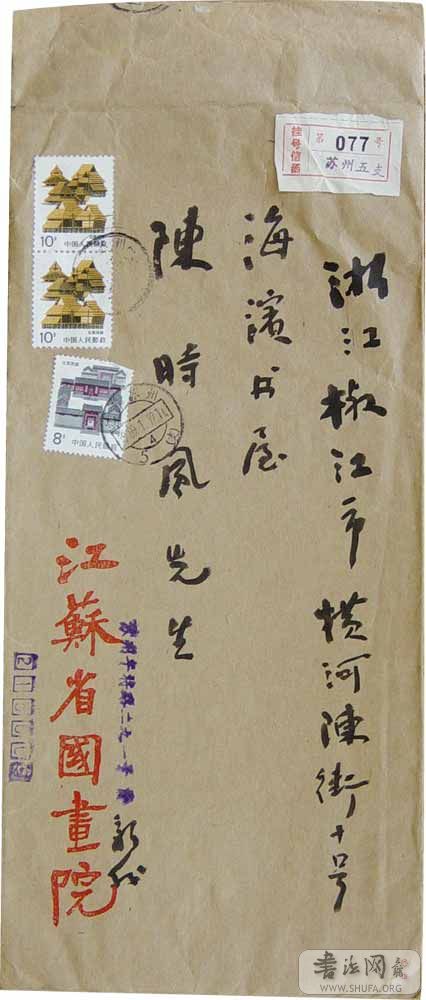 挂号信函
第 077 号
苏州五支
浙江椒江市横河陳街十号
海濱书屋
陳時風先生
10分
中国人民邮政
10分
中国人民邮政
8分
中国人民邮政
江蘇省國畫院
书法网
WWW.SHUFA.ORG